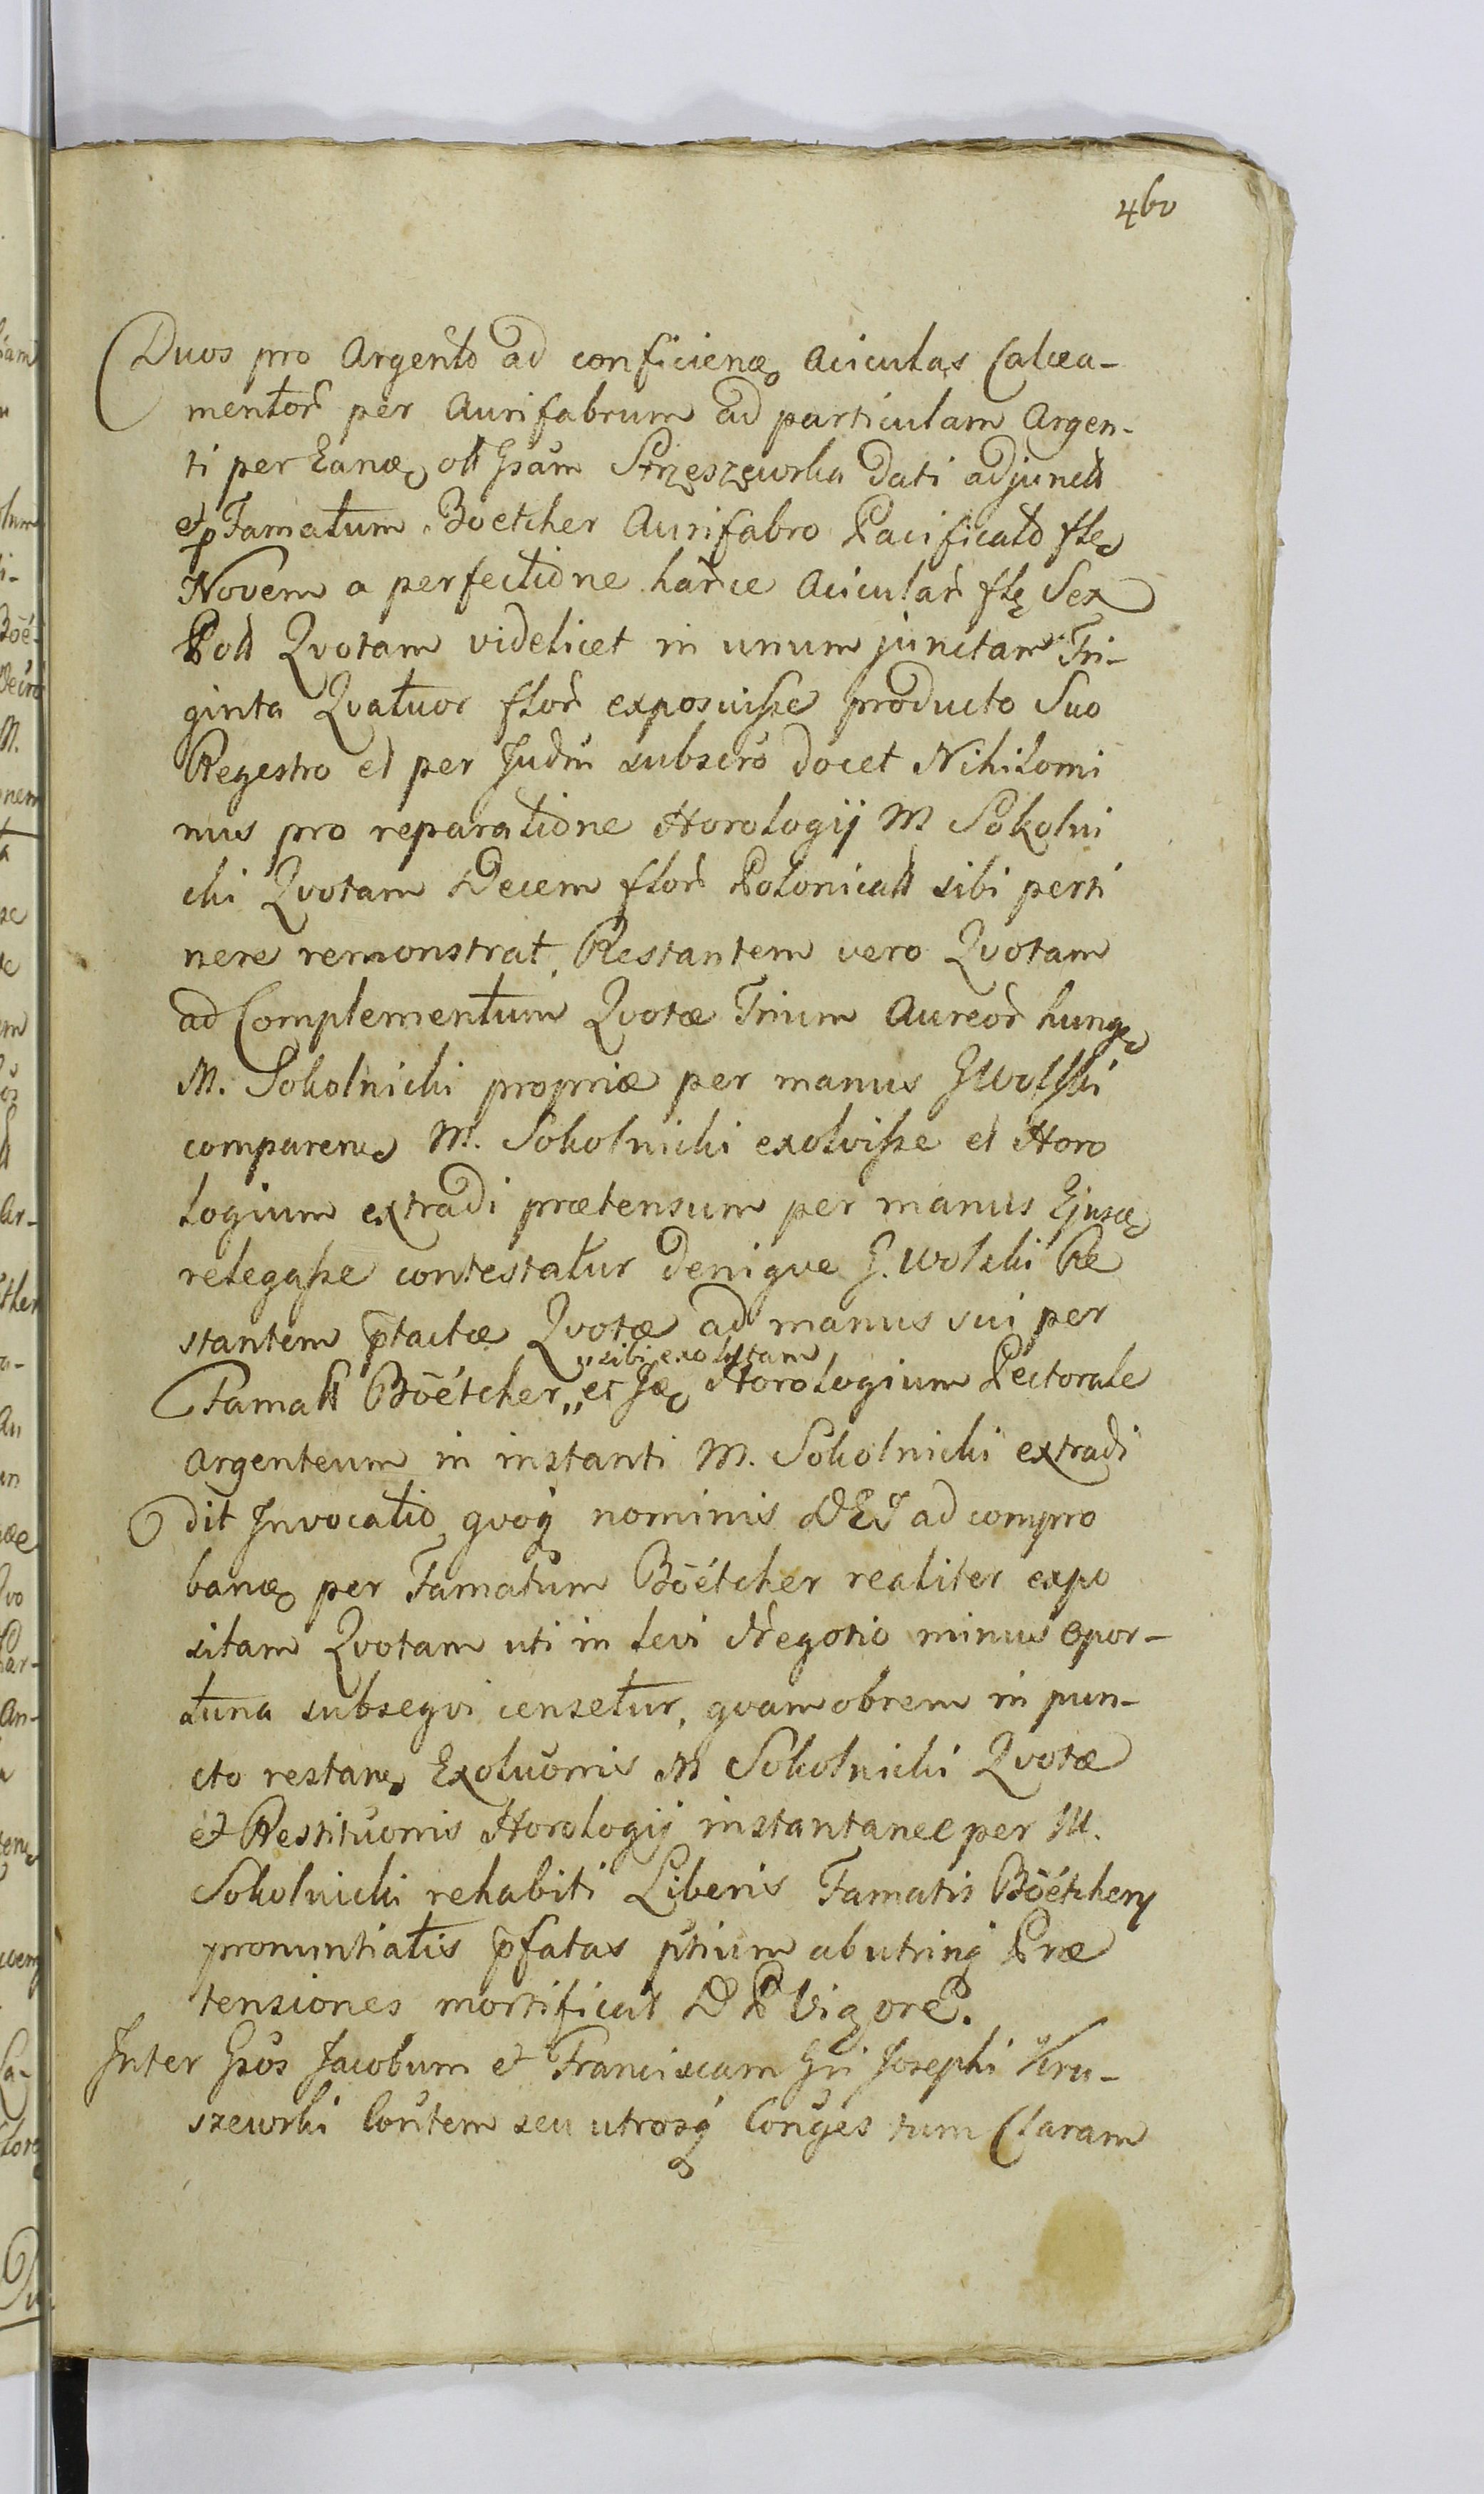 460
Duos pro Argento ad conficien aciculas Calcea-
mentor per Aurifabrum ad particulam Argen-
ti per Ean olt Gsam Strzeszewska dati adjunctt
et p Famatum Boetcher Aurifabro Pacificato fle
Novem a perfectione harce Acicular fle Sex
Poll Qvotam videlicet in unum junctam Tri-
ginta Qvatuor flor exposuisse producto Suo
Regestro et per Judm subscro docet Nihilomi
nus pro reparatione Horologij M Sokolni
cki Qvotam Decem flor Polonicall sibi perti
nere remonstrat. Restantem vero Qvotam
ad Complementum Qvotæ Trium Aureor hung
M. Sokolnicki propriæ per manus G Wolski
comparen M. Sokolnicki exolvisse et Horo
logium extradi prætensum per manus Ejusd
relegasse contestatur denique G. Wolski Re
stantem ptactæ Qvotæ ad manus sui per
„sibi exolutam
Famatt Böétcher „et Id Horologium Pectorale
Argenteum in instanti M. Sokolnicki extradi
dit Invocatio qvoq nominis DEI ad compro
band per Famatum Böétcher realiter expo
sitam Qvotam uti in levi Negotio minus opor-
tuna subseqvi censetur, qvamobrem in pun-
cto restan Exoluonis M Sokolnicki Qvotæ
et Restituonis Horologij instantanee per M.
Sokolnicki rehabiti Liberis Famatis Böétchery
pronuntiatis pfatas ptium abutrinq Præ
tensiones mortificat D P Vigore.
Inter Gsos Jacobum et Franciscam Gsi Josephi Kru-
szewski Contem seu utrosq Conges tum Claram